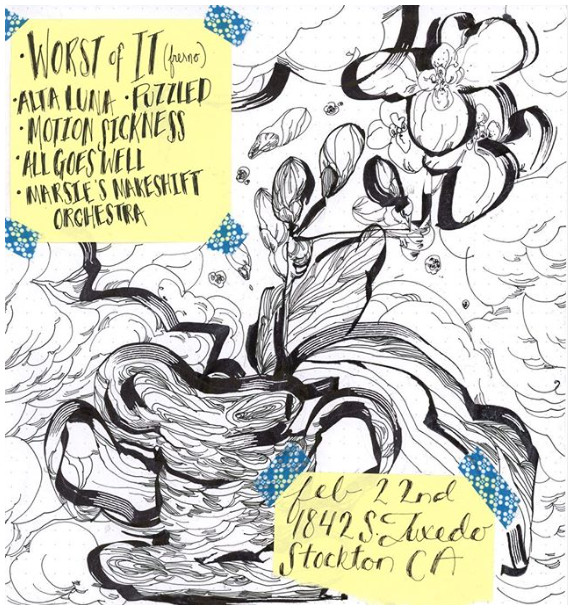 · WORST of IT (fresno)
· ALTA LUNA · PUZZLED
· MOTION SICKNESS
· ALL GOES WELL
· MARSIE'S MAKESHIFT
ORCHESTRA
feb 22nd
1842 S. Tuxedo
Stockton CA